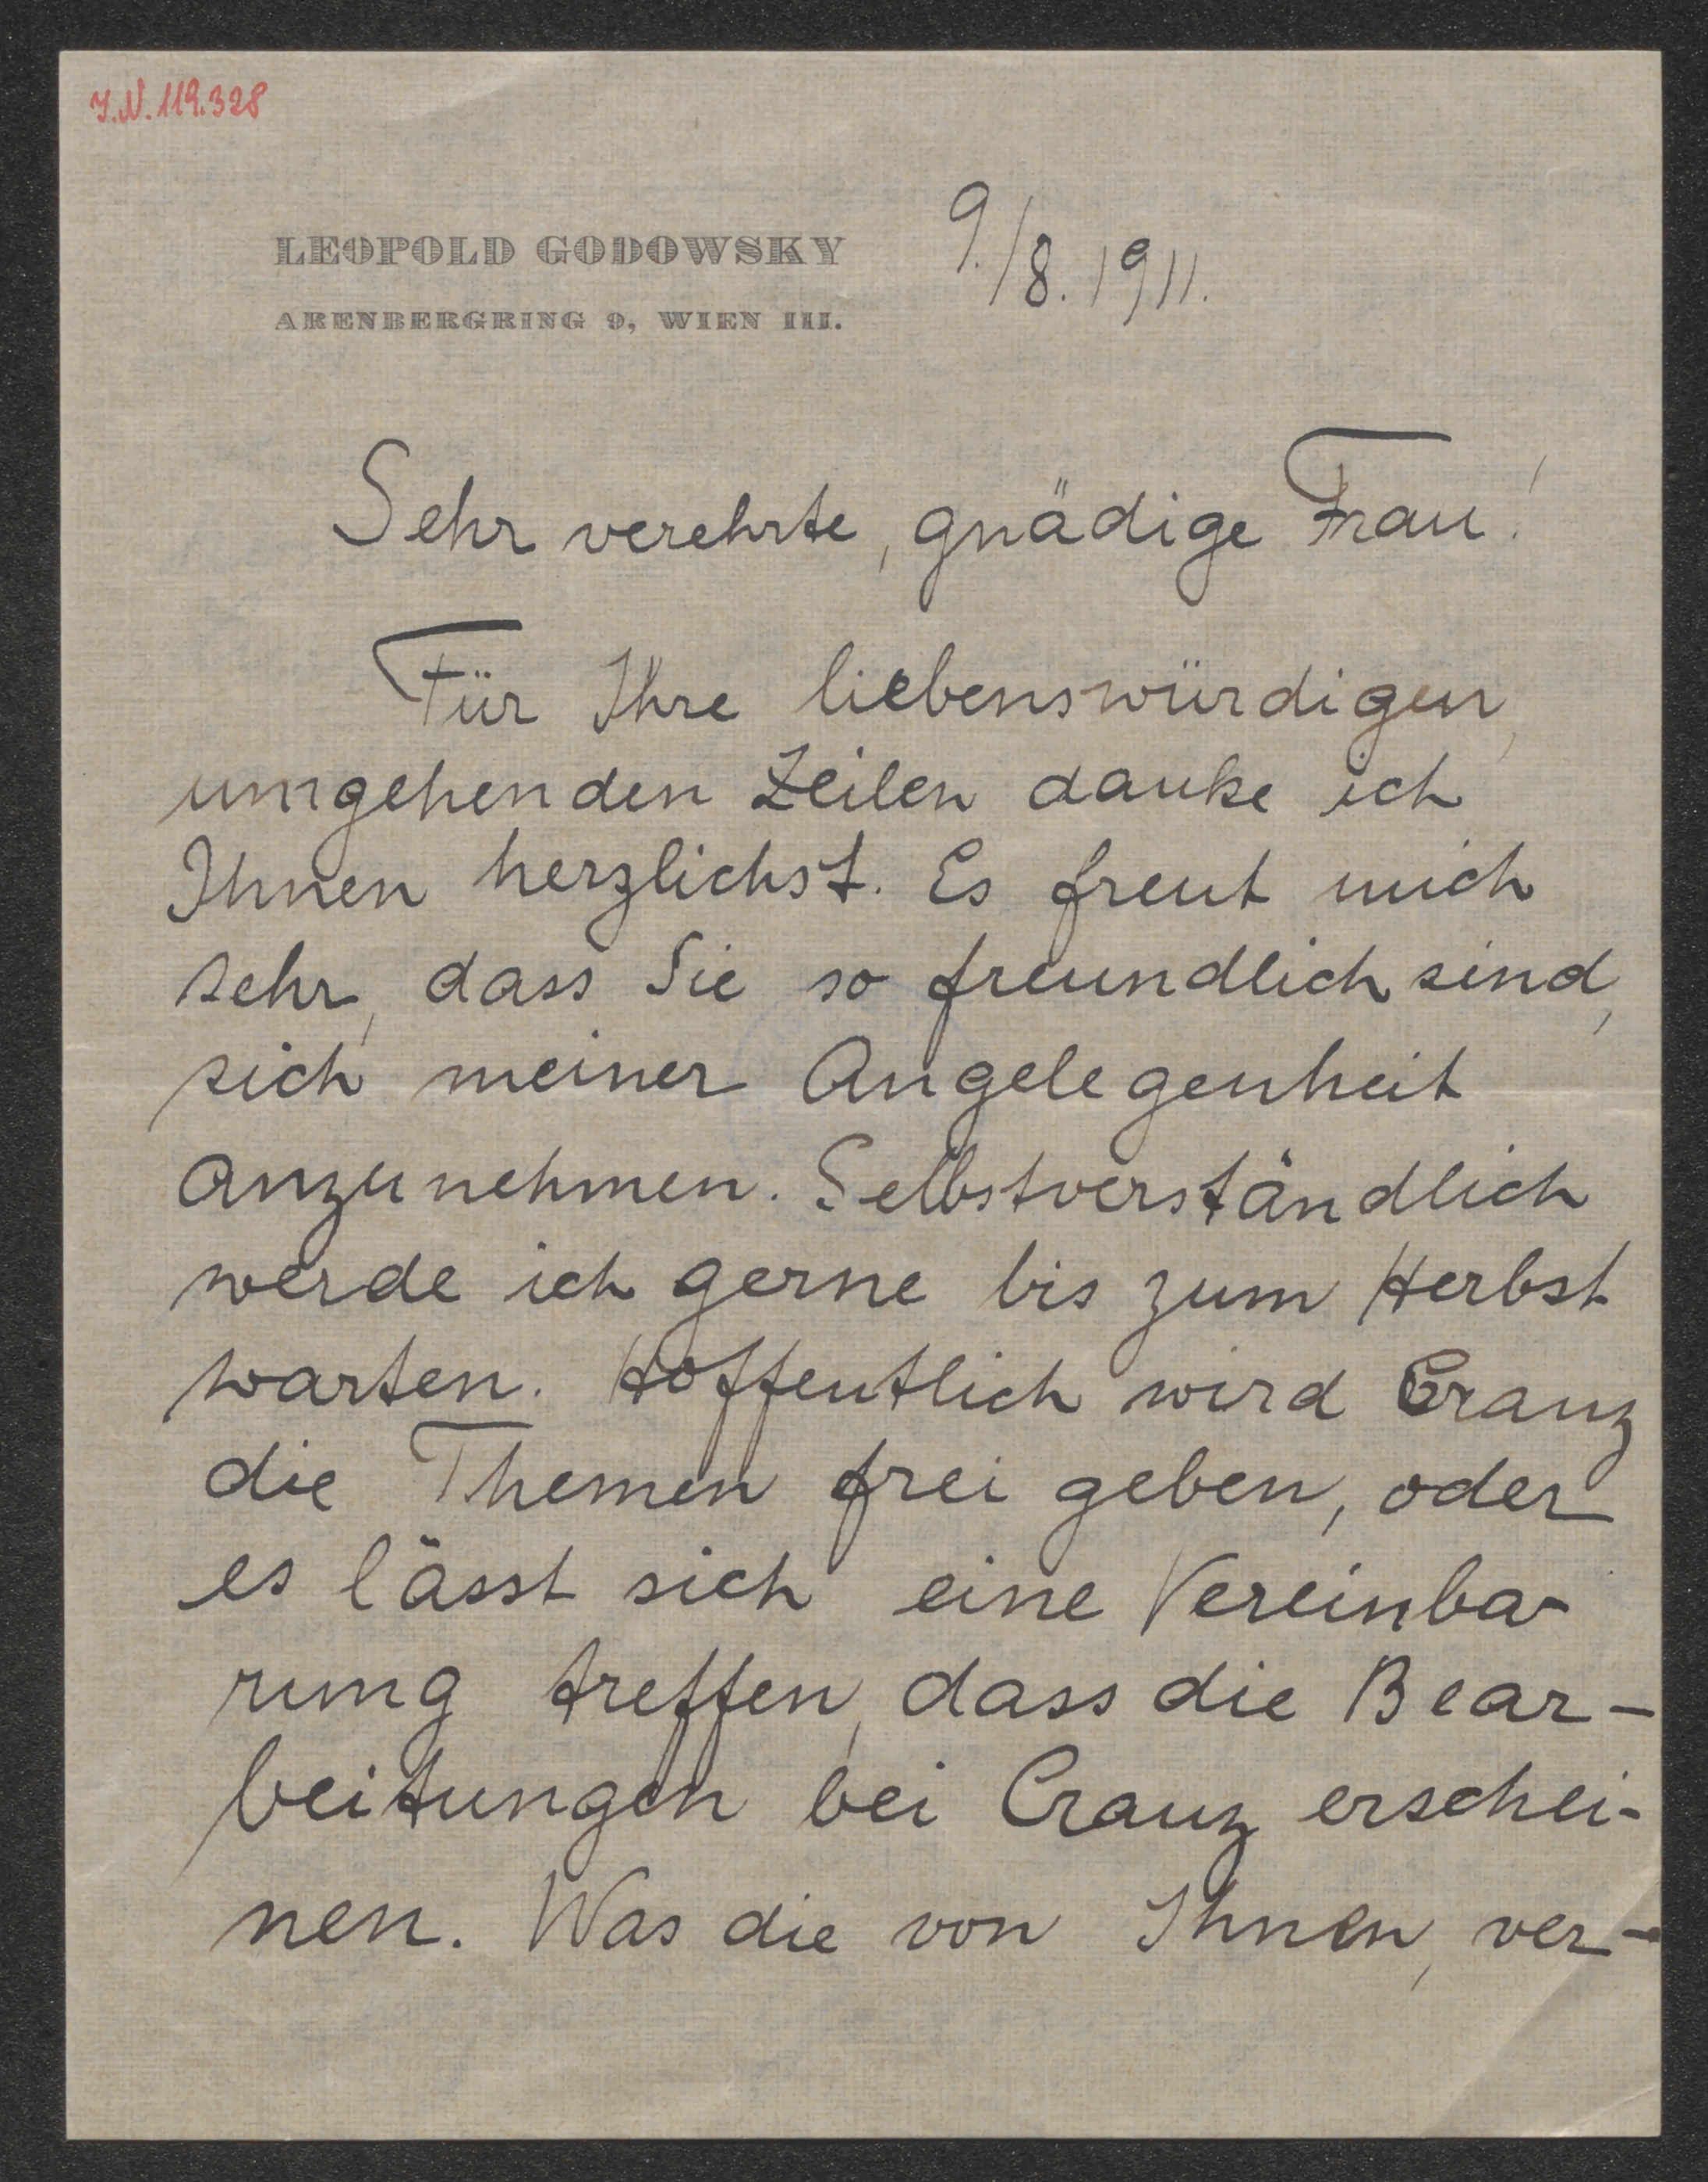 J.N. 119.328
LEOPOLD GODOWSKY
ARENBERGRING 9, WIEN III.
9./8. 1911.
Sehr verehrte, gnädige Frau!
Für Ihre liebenswürdigen,
umgehenden Zeilen danke ich
Ihnen herzlichst. Es freut mich
sehr, dass Sie so freundlich sind,
sich meiner Angelegenheit
anzunehmen. Selbstverständlich
werde ich gerne bis zum Herbst
warten. Hoffentlich wird Cranz
die Themen frei geben, oder
es lässt sich eine Vereinba-
rung treffen, dass die Bear-
beitungen bei Cranz erschei-
nen. Was die von Ihnen, ver-